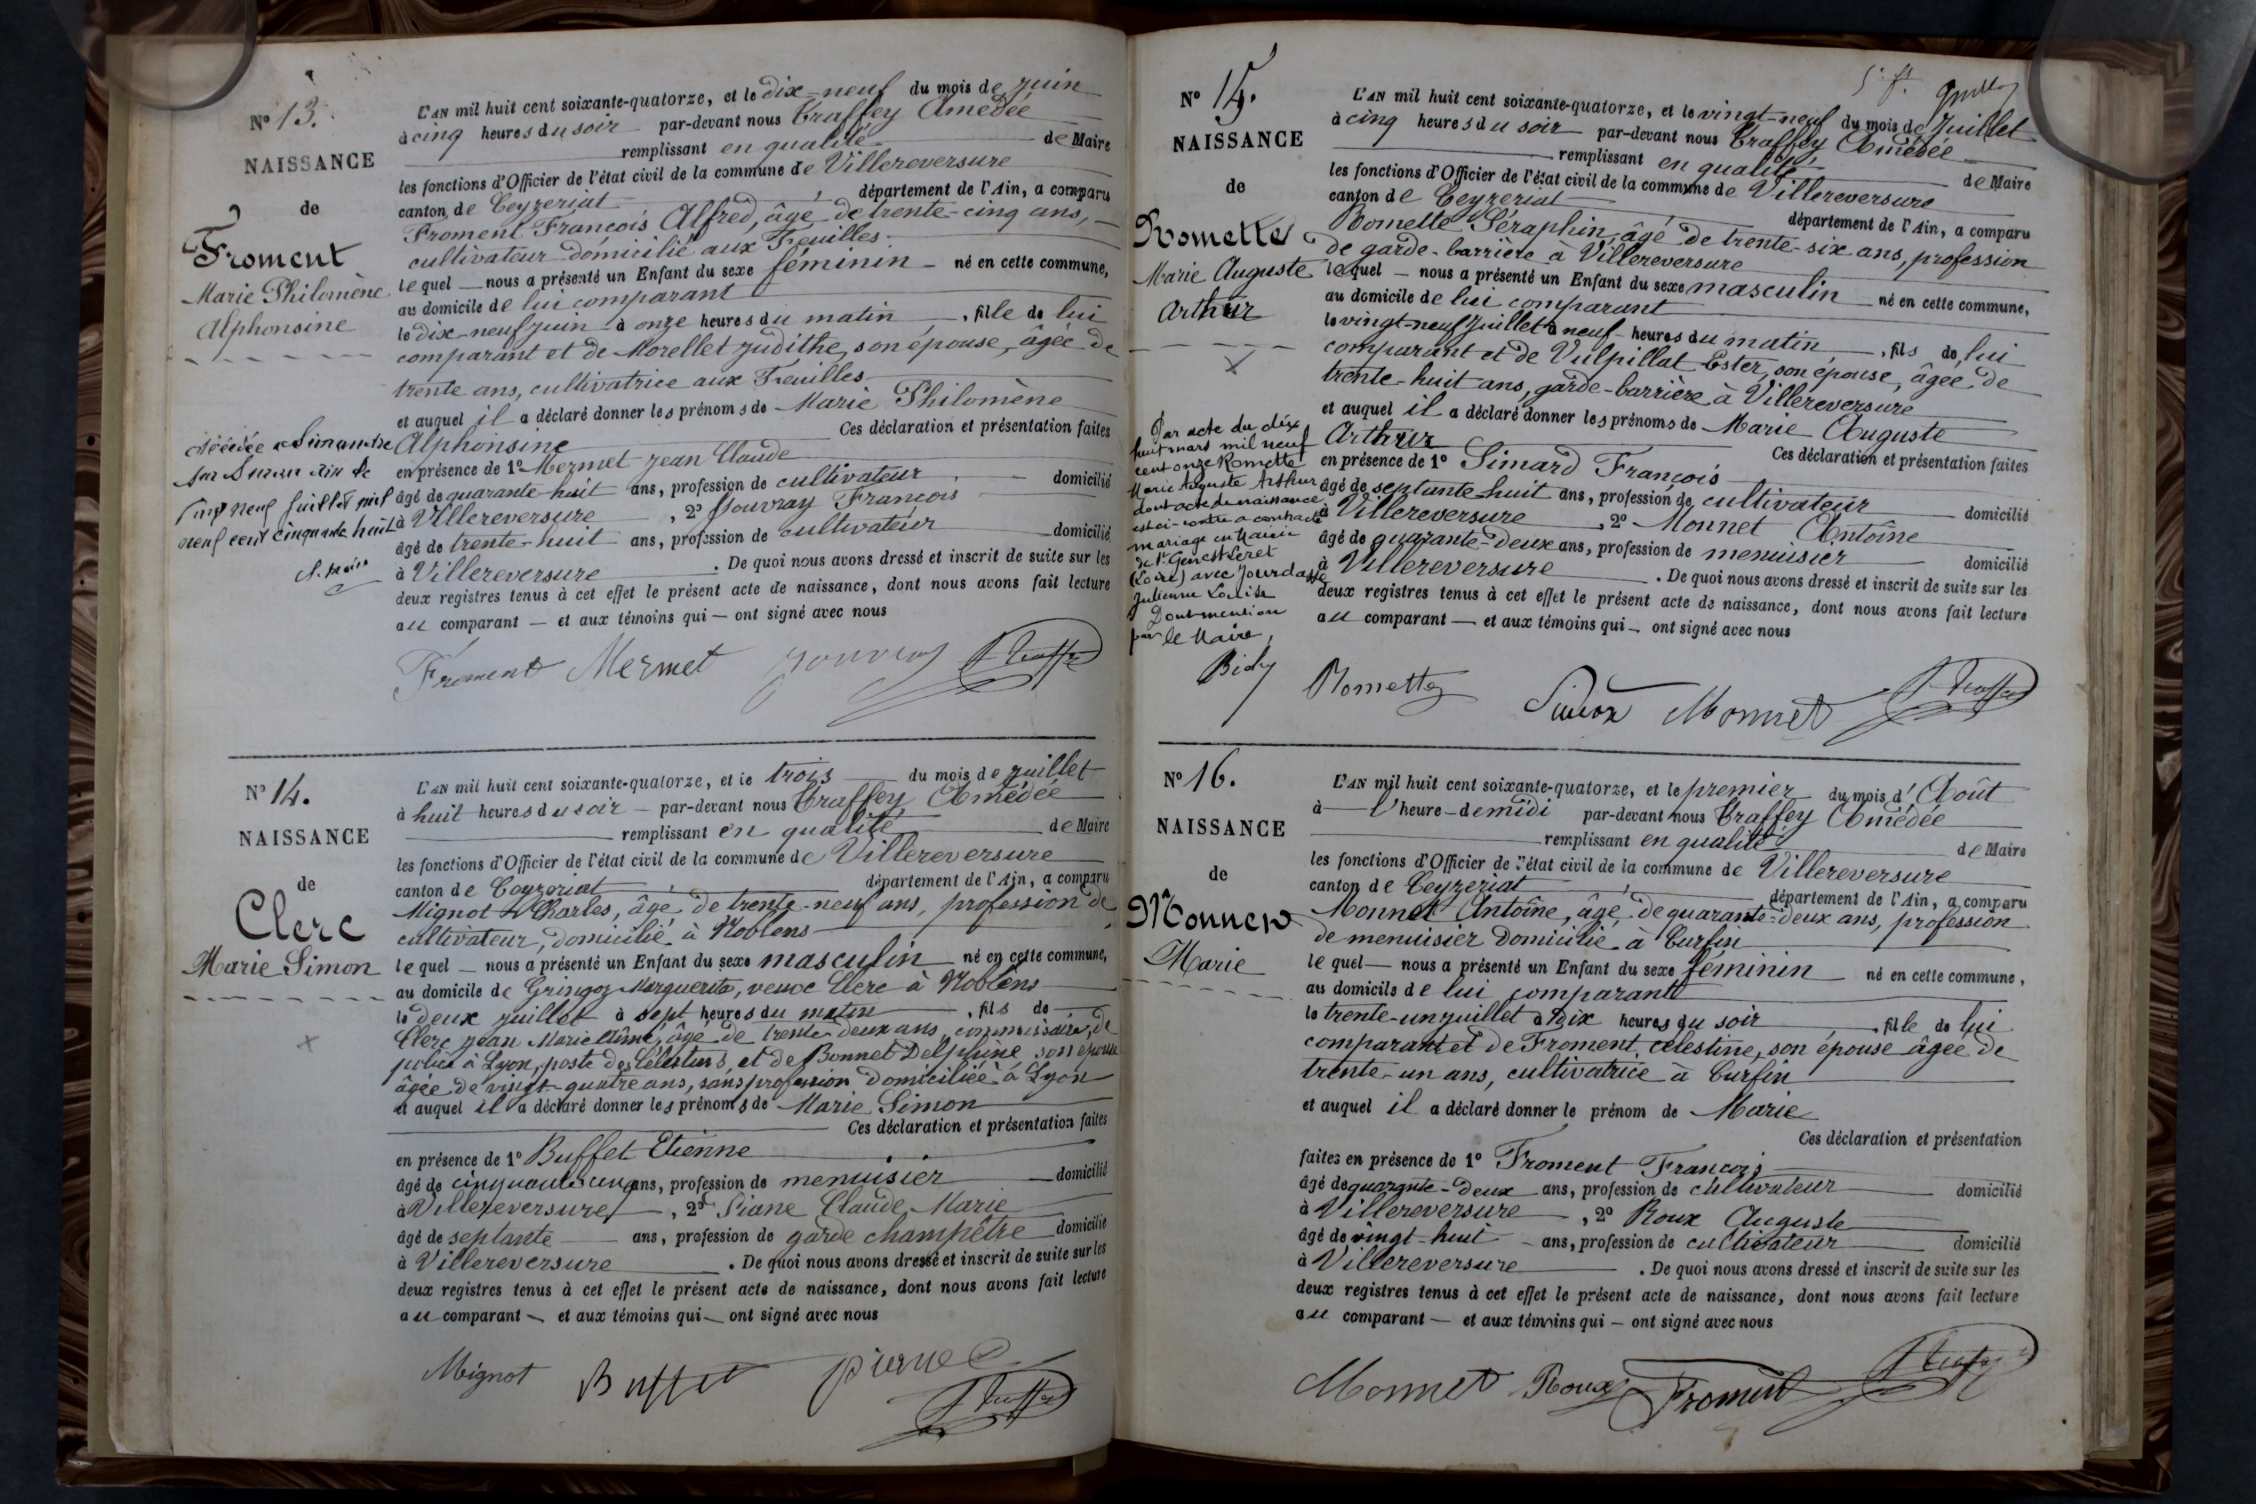 N° 13.
NAISSANCE
de
Froment
Marie Philomène
Alphonsine
L'AN mil huit cent soixante-quatorze, et le dix-neuf du mois de juin
à cinq heures du soir par-devant nous Traffey Amédée
remplissant en qualité de Maire
les fonctions d'Officier de l'état civil de la commune de Villereversure
canton de Ceyzeriat département de l'Ain, a comparu
Froment François Alfred, âgé de trente-cinq ans,
cultivateur domicilié aux Feuilles
lequel nous a présenté un Enfant du sexe féminin né en cette commune,
au domicile de lui comparant
le dix-neuf juin à onze heures du matin, fille de lui
comparant et de Morellet Judithe, son épouse, âgée de
trente ans, cultivatrice aux Feuilles
et auquel il a déclaré donner les prénoms de Marie Philomène
Alphonsine Ces déclaration et présentation faites
en présence de 1° Mermet Jean Claude
âgé de quarante-huit ans, profession de cultivateur domicilié
à Villereversure, 2° Jouvray François
âgé de trente-huit ans, profession de cultivateur domicilié
à Villereversure. De quoi nous avons dressé et inscrit de suite sur les
deux registres tenus à cet effet le présent acte de naissance, dont nous avons fait lecture
au comparant et aux témoins qui ont signé avec nous
décédée à Simandre
sur Suran Ain le
vingt neuf juillet mil
neuf cent cinquante huit
Froment Mermet Jouvray Traffey
N° 14.
NAISSANCE
de
Clerc
Marie Simon
L'AN mil huit cent soixante-quatorze, et le trois du mois de juillet
à huit heures du soir par-devant nous Traffey Amédée
remplissant en qualité de Maire
les fonctions d'Officier de l'état civil de la commune de Villereversure
canton de Ceyzeriat département de l'Ain, a comparu
Mignot Charles, âgé de trente-neuf ans, profession de
cultivateur, domicilié à Noblens
lequel nous a présenté un Enfant du sexe masculin né en cette commune,
au domicile de Gringoz Marguerite, veuve Clerc à Noblens
le deux juillet à sept heures du matin, fils de
Clerc Jean Marie Aimé, âgé de trente-deux ans, commissaire de
police à Lyon, poste des Célestins, et de Bonnet Delphine son épouse
âgée de vingt-quatre ans, sans profession domiciliée à Lyon
et auquel il a déclaré donner les prénoms de Marie Simon
Ces déclaration et présentation faites
en présence de 1° Buffet Etienne
âgé de cinquante cinq ans, profession de menuisier domicilié
à Villereversure, 2° Piane Claude Marie
âgé de septante ans, profession de garde champêtre domicilié
à Villereversure. De quoi nous avons dressé et inscrit de suite sur les
deux registres tenus à cet effet le présent acte de naissance, dont nous avons fait lecture
au comparant et aux témoins qui ont signé avec nous
Mignot Buffet Traffey
N° 15.
NAISSANCE
de
Romette
Marie Auguste
Arthur
L'AN mil huit cent soixante-quatorze, et le vingt-neuf du mois de Juillet
à cinq heures du soir par-devant nous Traffey Amédée
remplissant en qualité de Maire
les fonctions d'Officier de l'état civil de la commune de Villereversure
canton de Ceyzeriat département de l'Ain, a comparu
Romette Séraphin âgé de trente-six ans, profession
de garde-barrière à Villereversure
lequel nous a présenté un Enfant du sexe masculin né en cette commune,
au domicile de lui comparant
le vingt-neuf juillet à neuf heures du matin, fils de lui
comparant et de Vulpillat Ester, son épouse, âgée de
trente-huit ans, garde-barrière à Villereversure
et auquel il a déclaré donner les prénoms de Marie Auguste
Arthur Ces déclaration et présentation faites
en présence de 1° Simard François
âgé de septante huit ans, profession de cultivateur domicilié
à Villereversure, 2° Monnet Antoine
âgé de quarante-deux ans, profession de menuisier domicilié
à Villereversure. De quoi nous avons dressé et inscrit de suite sur les
deux registres tenus à cet effet le présent acte de naissance, dont nous avons fait lecture
au comparant et aux témoins qui ont signé avec nous
Par acte du dix
huit mars mil neuf
cent onze Romette
Marie Auguste Arthur
dont acte de naissance
est ci-contre a contracté
mariage en Mairie
de St Genest Lerpt
(Loire) avec
Julienne Louise
Dont mention
par le Maire,
Romette Monnet Traffey
N° 16.
NAISSANCE
de
Monnet
Marie
L'AN mil huit cent soixante-quatorze, et le premier du mois d'Août
à l'heure de midi par-devant nous Traffey Amédée
remplissant en qualité de Maire
les fonctions d'Officier de l'état civil de la commune de Villereversure
canton de Ceyzeriat département de l'Ain, a comparu
Monnet Antoine, âgé de quarante-deux ans, profession
de menuisier domicilié à Curfin
lequel nous a présenté un Enfant du sexe féminin né en cette commune,
au domicile de lui comparant
le trente-un juillet à dix heures du soir, fille de lui
comparant et de Froment Célestine, son épouse âgée de
trente-un ans, cultivatrice à Curfin
et auquel il a déclaré donner le prénom de Marie
Ces déclaration et présentation
faites en présence de 1° Froment François
âgé de quarante-deux ans, profession de cultivateur domicilié
à Villereversure, 2° Roux Auguste
âgé de vingt-huit ans, profession de cultivateur domicilié
à Villereversure. De quoi nous avons dressé et inscrit de suite sur les
deux registres tenus à cet effet le présent acte de naissance, dont nous avons fait lecture
au comparant et aux témoins qui ont signé avec nous
Monnet Roux Froment Traffey